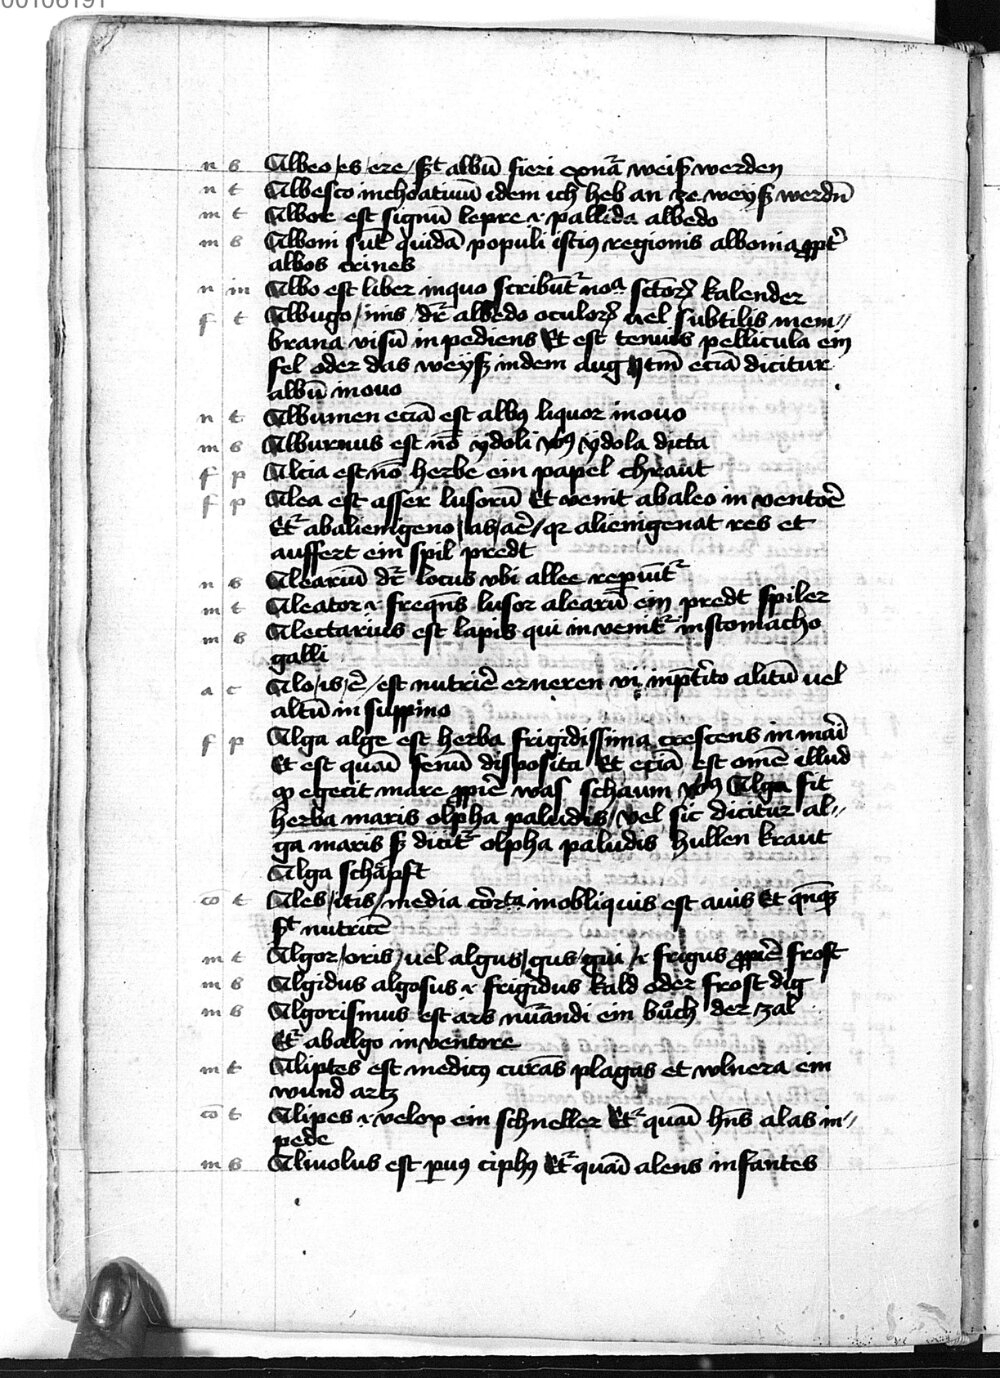 00106191
n s Albeo / es / ere / s̄t albū fieri exꝑnā weiß werden
n t Albesco inchoatiuū idem ich heb an ze weyß werdn̄
m t Albor est signū lepre ⁊ pallida albedo
m s Alboni sūt quidā populi istiꝰ regionis albonia ꝓpt̄
albos crines
n m Albo est liber inquo scribūt᷑ noa sc̄toꝝ kalender
f t Albugo / inis dr̄ albedo oculoꝝ uel subtilis mem⸗
brana visū inpediens Et est tenuis pellicula ein
fel oder das weyß indem aug Itm̄ eciā dicitur
albū inouo
n t Albumen eciā est albꝰ liquor inouo
m s Alburnus est nō ydoli vō ydola dicta
f p Alcia est nō herbe ein papel chraut
f p Alea est asser lusorū Et venit abaleo in ventor̄
Et᷑ abalienigeno / as / ar̄ / qꝛ alienigenat res et
auffert ein spil predt
n s Aleariū dr̄ locus vbi allee reperiūt᷑
m t Aleator ⁊ freqn̄s lusor alearū ein predt spiler
m s Alectarius est lapis qui inuenit᷑ instomacho
galli
a c Alo / is / ē / est nutrir̄ erneren vi inp̄terito alitū uel
altū in suppino
f p Alga alge est herba frigidissima crescens in mari
Et est quasi fenū disposita Et eciā est omē illud
ꝙ egecit mare ꝓprie was schaum Alga fit
herba maris olpha paludis / vel sic dicitur al⸗
ga maris s̄ dicit᷑ olpha paludis hullen kraut
Alga schapft
cō t Ales / itis / media cōrta inobliquis est auis Et qn̄qꝫ
s̄t nutrice
m t Algor / oris / uel algus / gus / gui / ⁊ frigus ꝓprie frost
m s Algidus algosus ⁊ frigidus kald oder frostdig
m s Algorismus est ars nūandi ein bůch der zal
Et᷑ abalgo inventore
m t Aliptes est medicꝰ curās plagas et vlnera ein
wund artz
cō t Alipes ⁊ velox ein schneller Et᷑ quasi hn̄s alas in⸗
pede
m s Aliuolus est puꝰ ciphꝰ Et᷑ quasi alens infantes